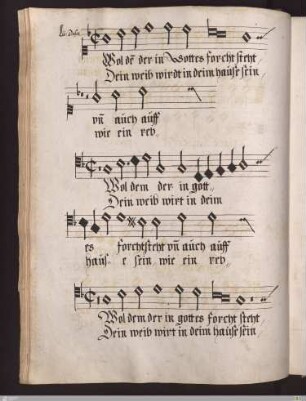 Wol dē der in Gottes forcht steht
Dein weib wirdt in deim hause sein
vn̄ auch auff
wie ein reb
Wol dem der in gott
Dein weib wirt in deim
es forchtsteht vn̄ auch auff
haus e sein wie ein reb
Wol dem der in gottes forcht steht
Dein weib wirt in deim hause sein